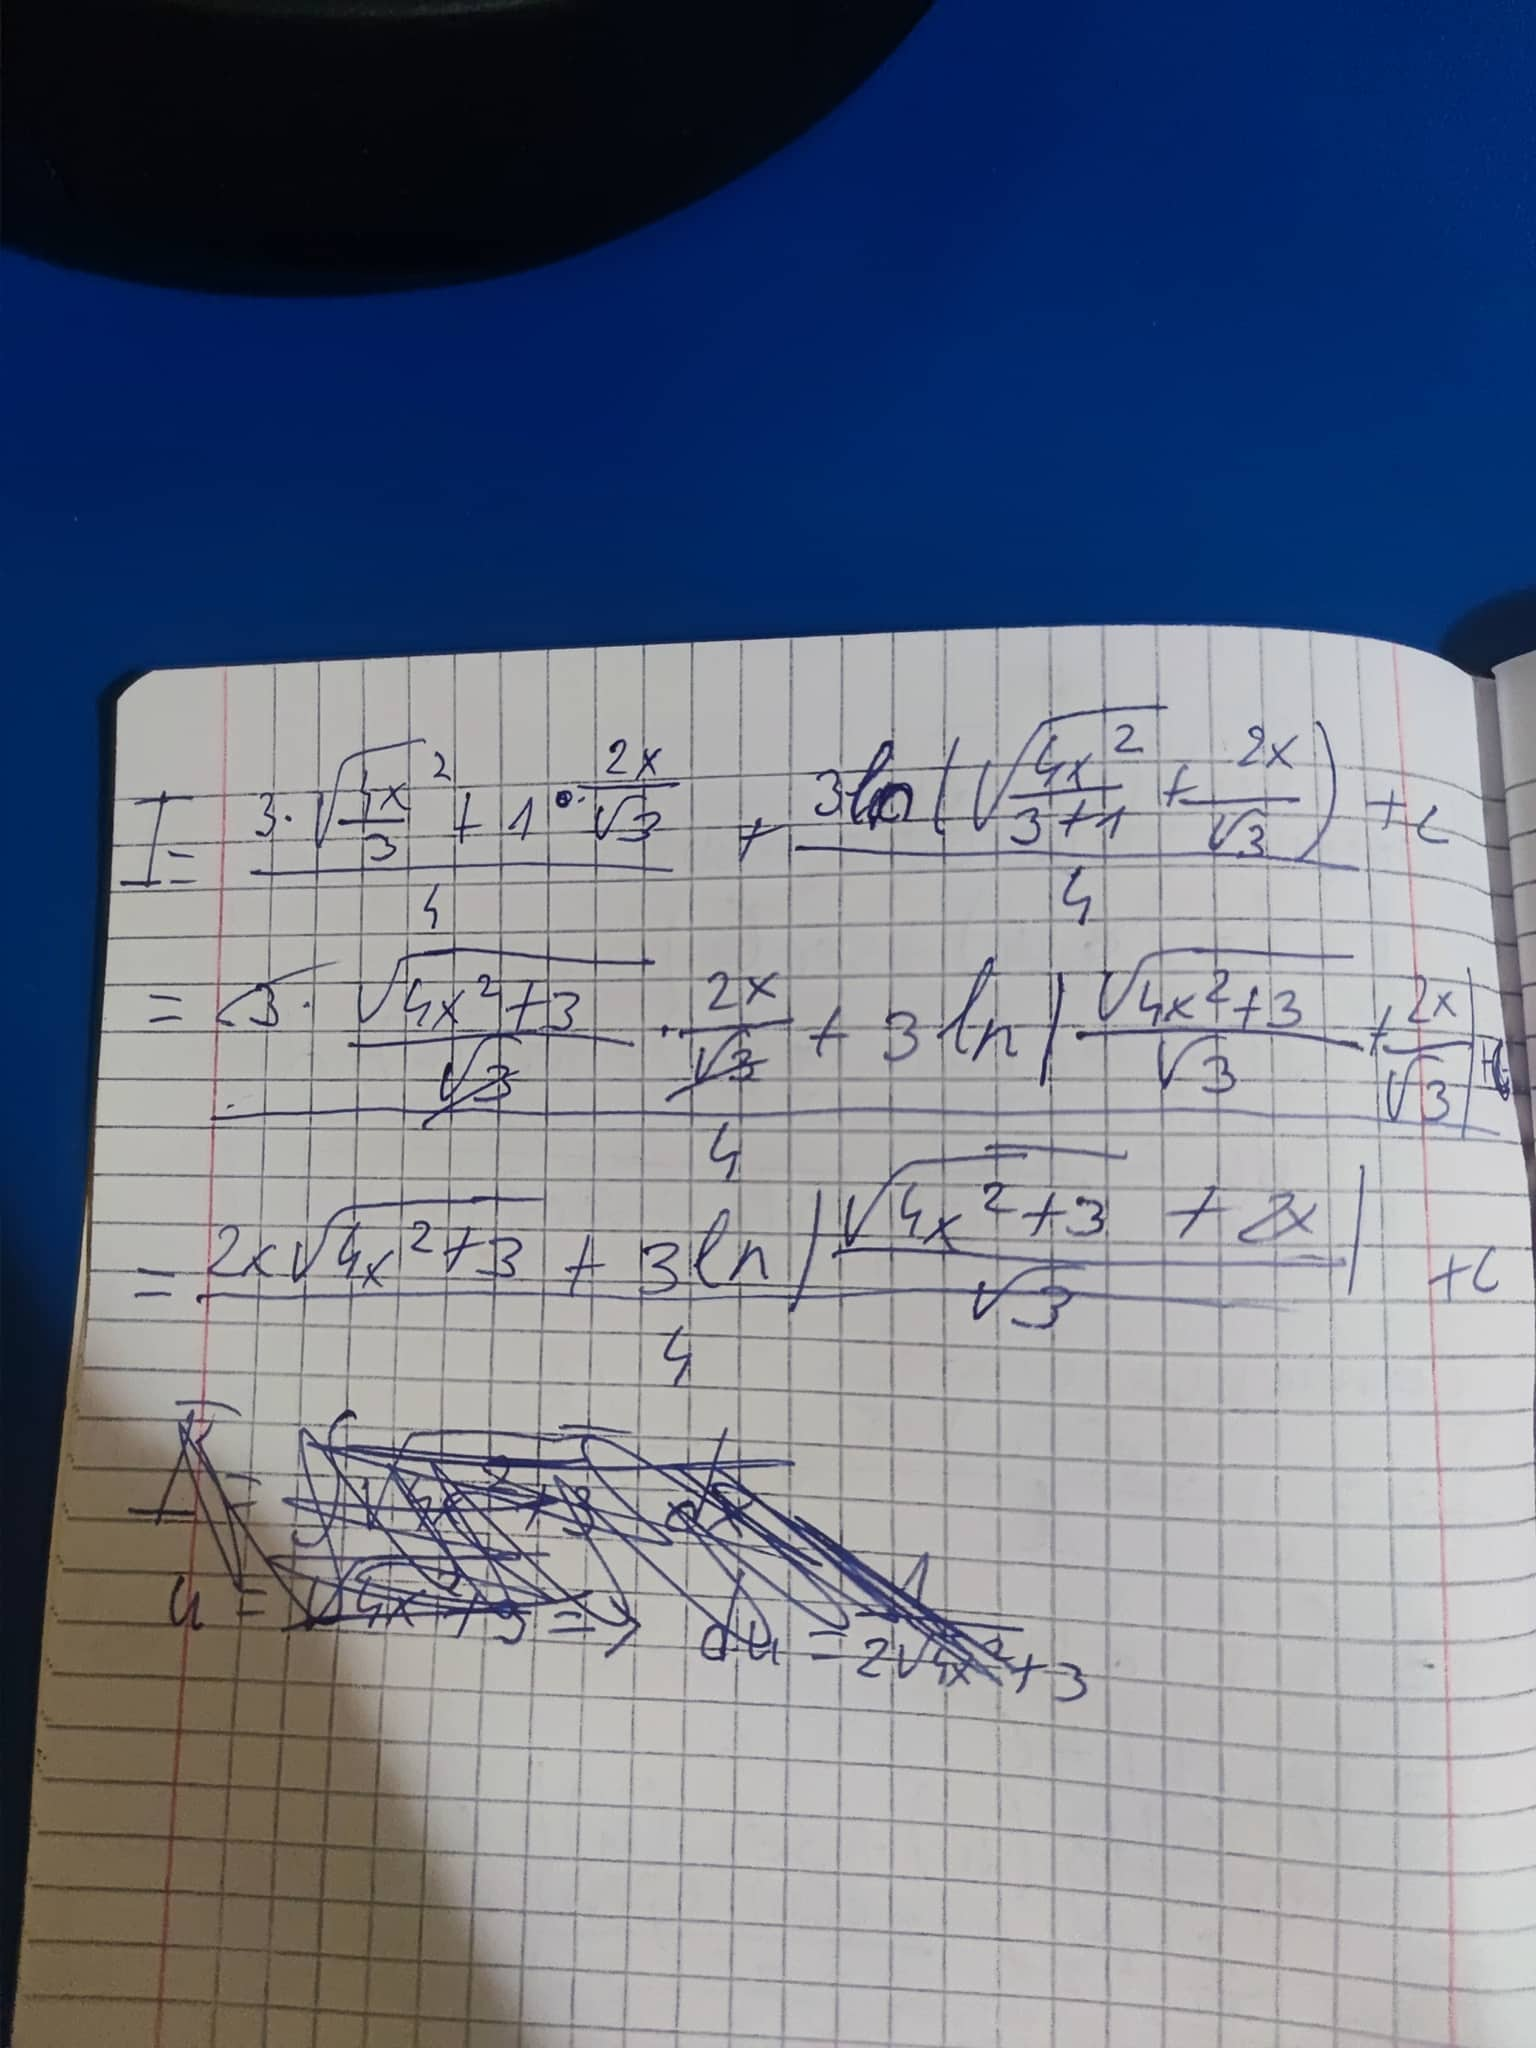 I = (3·√(4x²/3 + 1) · 2x/√3)/4 + (3ln(√(4x²/3+1) + 2x/√3))/4 + c
= (3 · √(4x²+3)/√3 · 2x/√3 + 3 ln|√(4x²+3)/√3 + 2x/√3| + c)/4
= (2x√(4x²+3) + 3 ln|(√(4x²+3) + 2x)/√3|)/4 + c
u = √(4x²+3 => du = 1/(2√(4x²+3